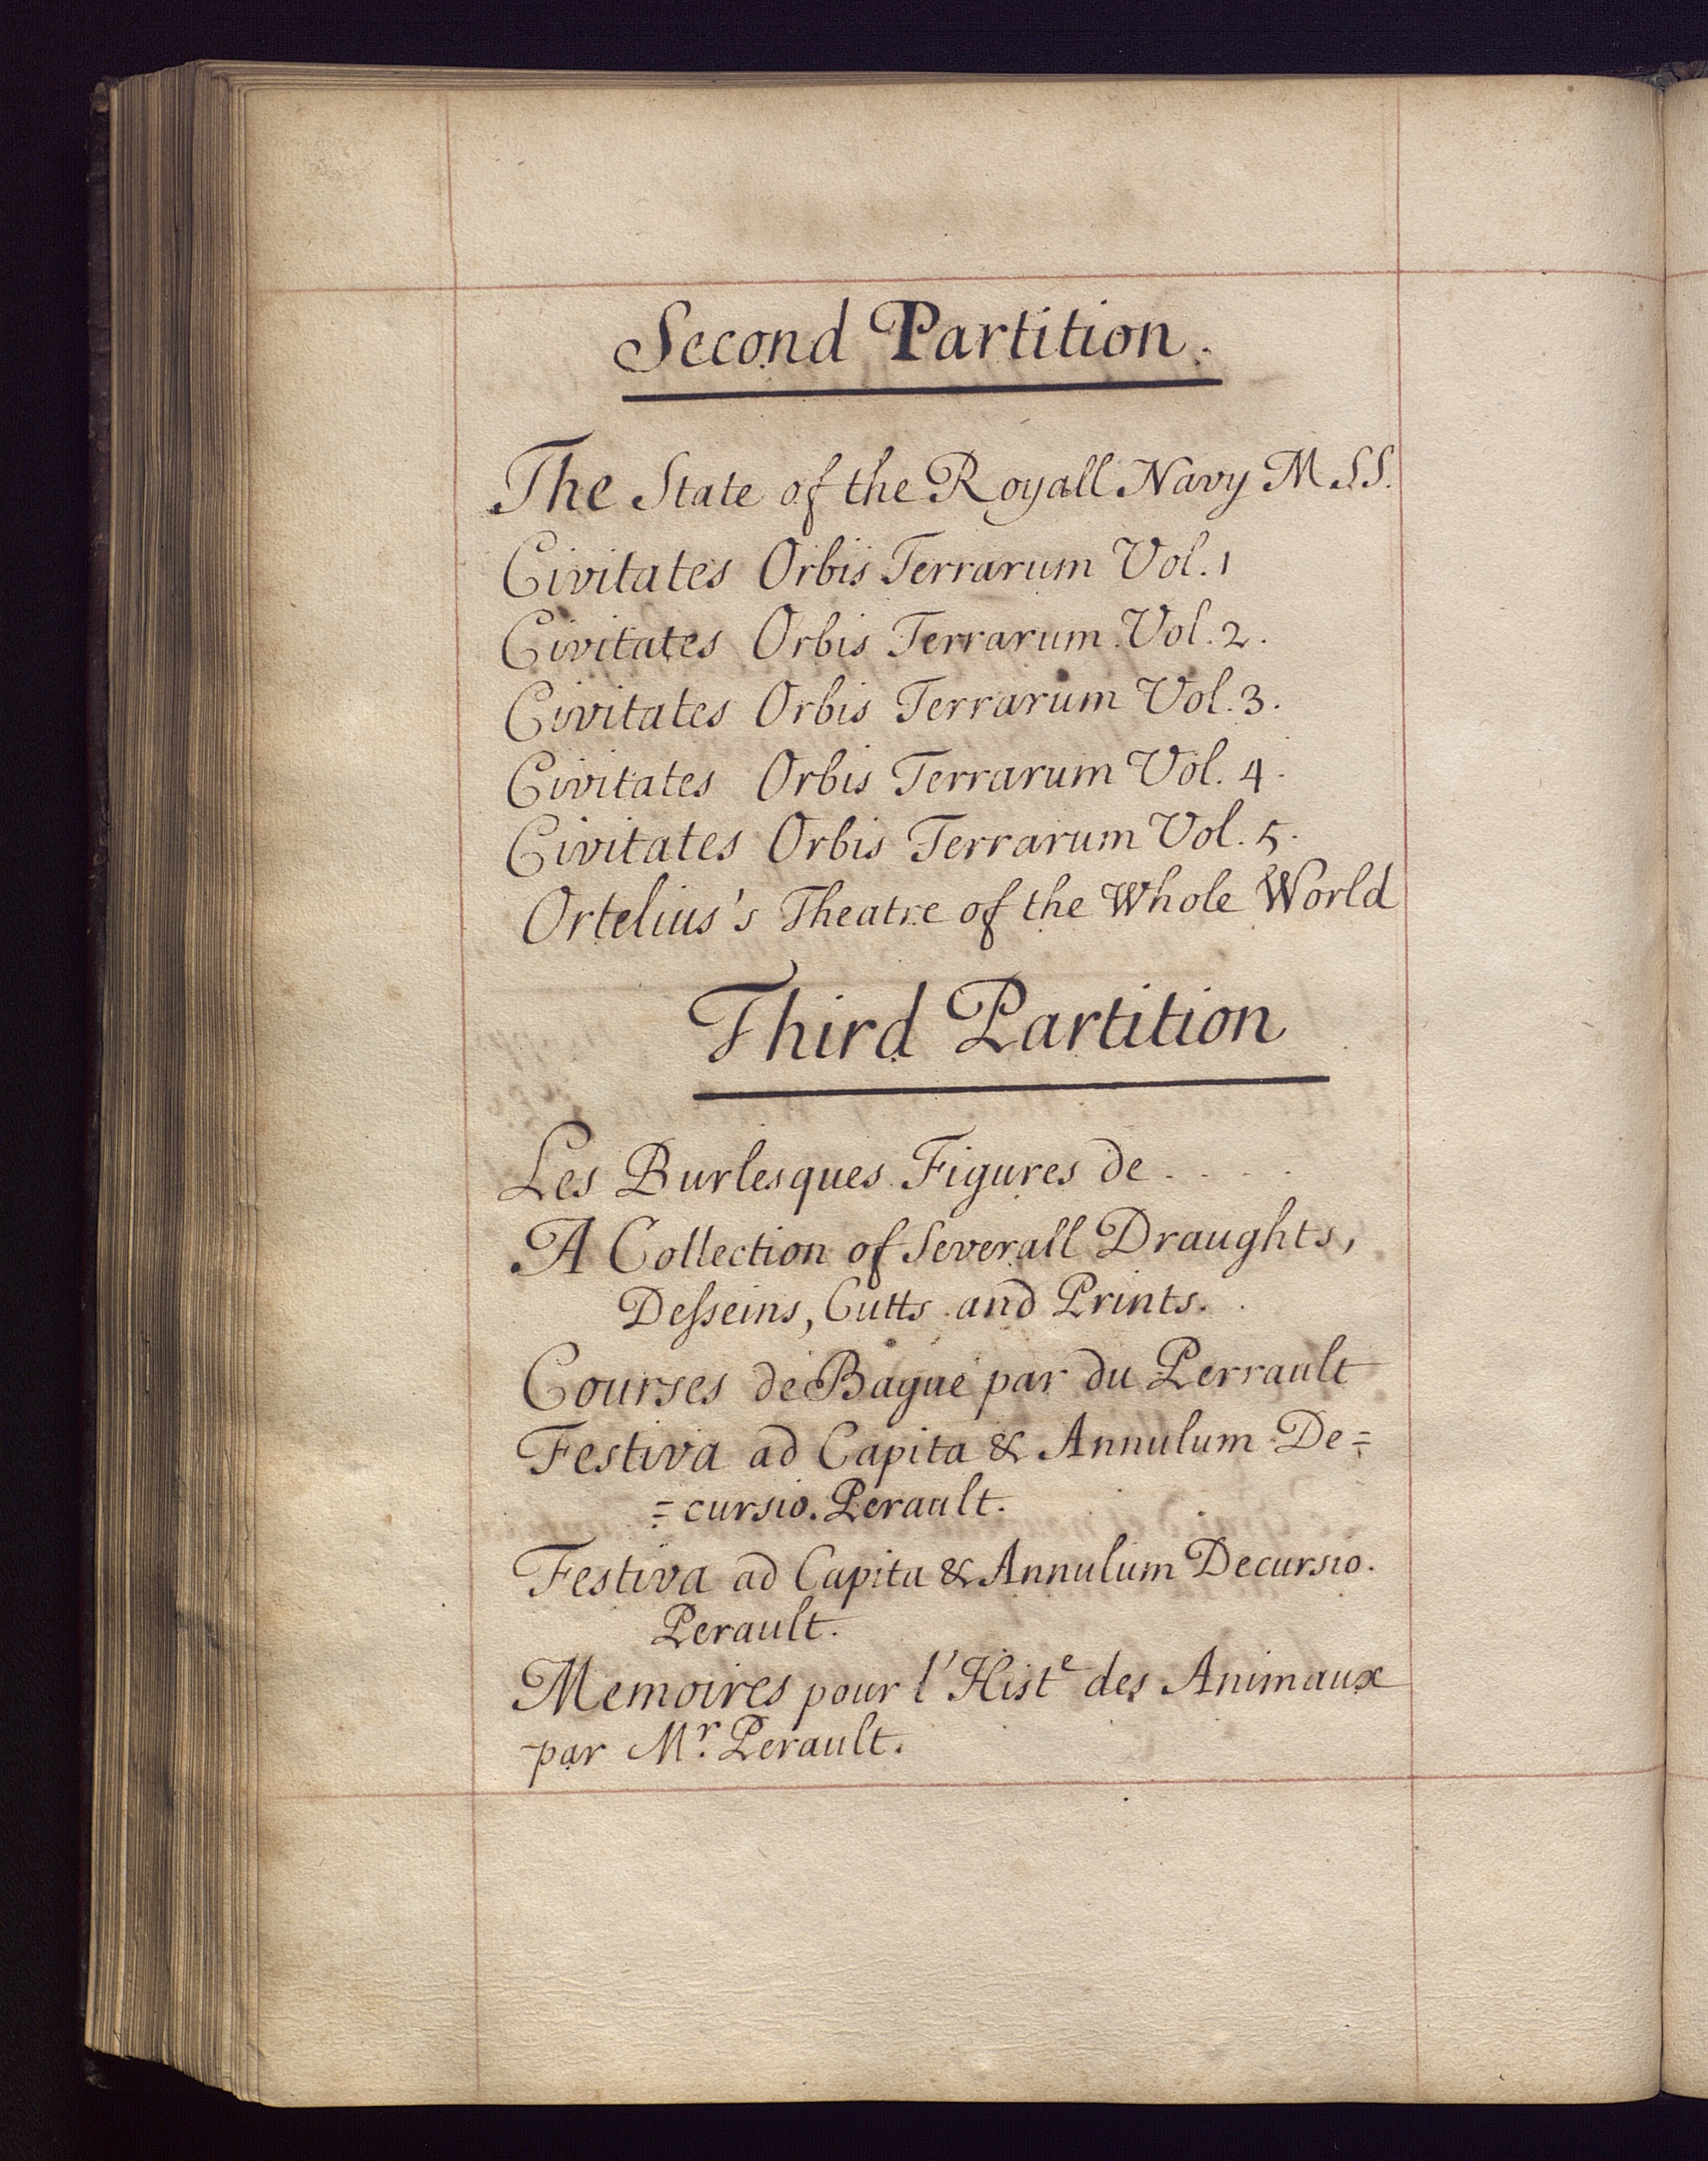 Second Partition.
The State of the Royall Navy MSS.
Civitates Orbis Terrarum Vol. 1
Civitates Orbis Terrarum Vol. 2.
Civitates Orbis Terrarum Vol. 3.
Civitates Orbis Terrarum Vol. 4.
Civitates Orbis Terrarum Vol. 5.
Ortelius's Theatre of the Whole World
Third Partition
Les Burlesques Figures de . . . .
A Collection of Severall Draughts,
Deſseins, Cutts and Prints.
Courses de Bague par du Perrault
Festiva ad Capita & Annulum De=
=cursio. Perault.
Festiva ad Capita & Annulum Decursio.
Perault.
Memoires pour l'Histᵉ des Animaux
par Mʳ. Perault.